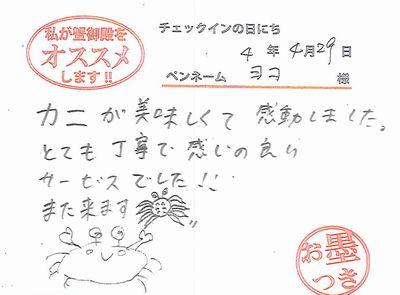 私が蟹御殿を
オススメ
します!!
チェックインの日にち
4 年 4月 29 日
ペンネーム ヨコ 様
カニが美味しくて 感動しました。
とても丁寧で感じの良い
サービスでした!!
また来ます
お墨
つき